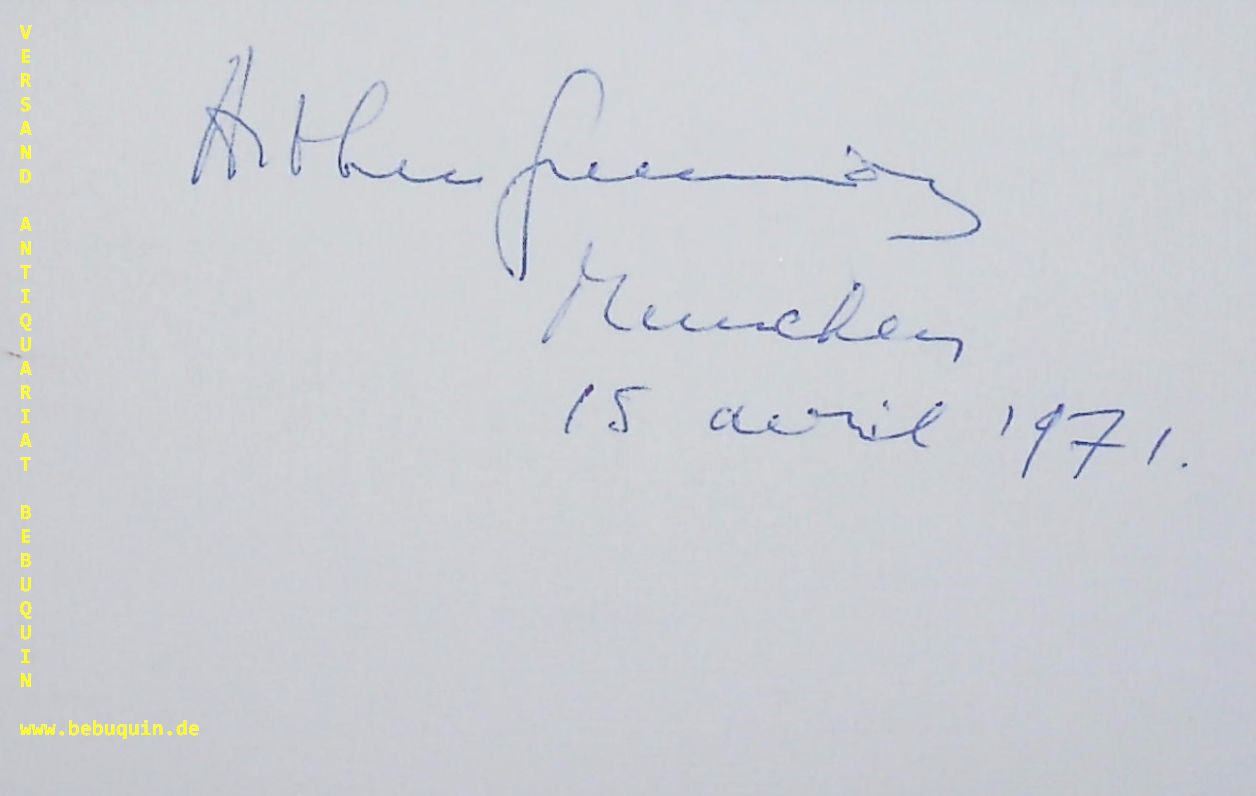 Arthur Grumiaux
Munchen
15 avril 1971.
VERSAND ANTIQUARIAT BEBUQUIN
www.bebuquin.de